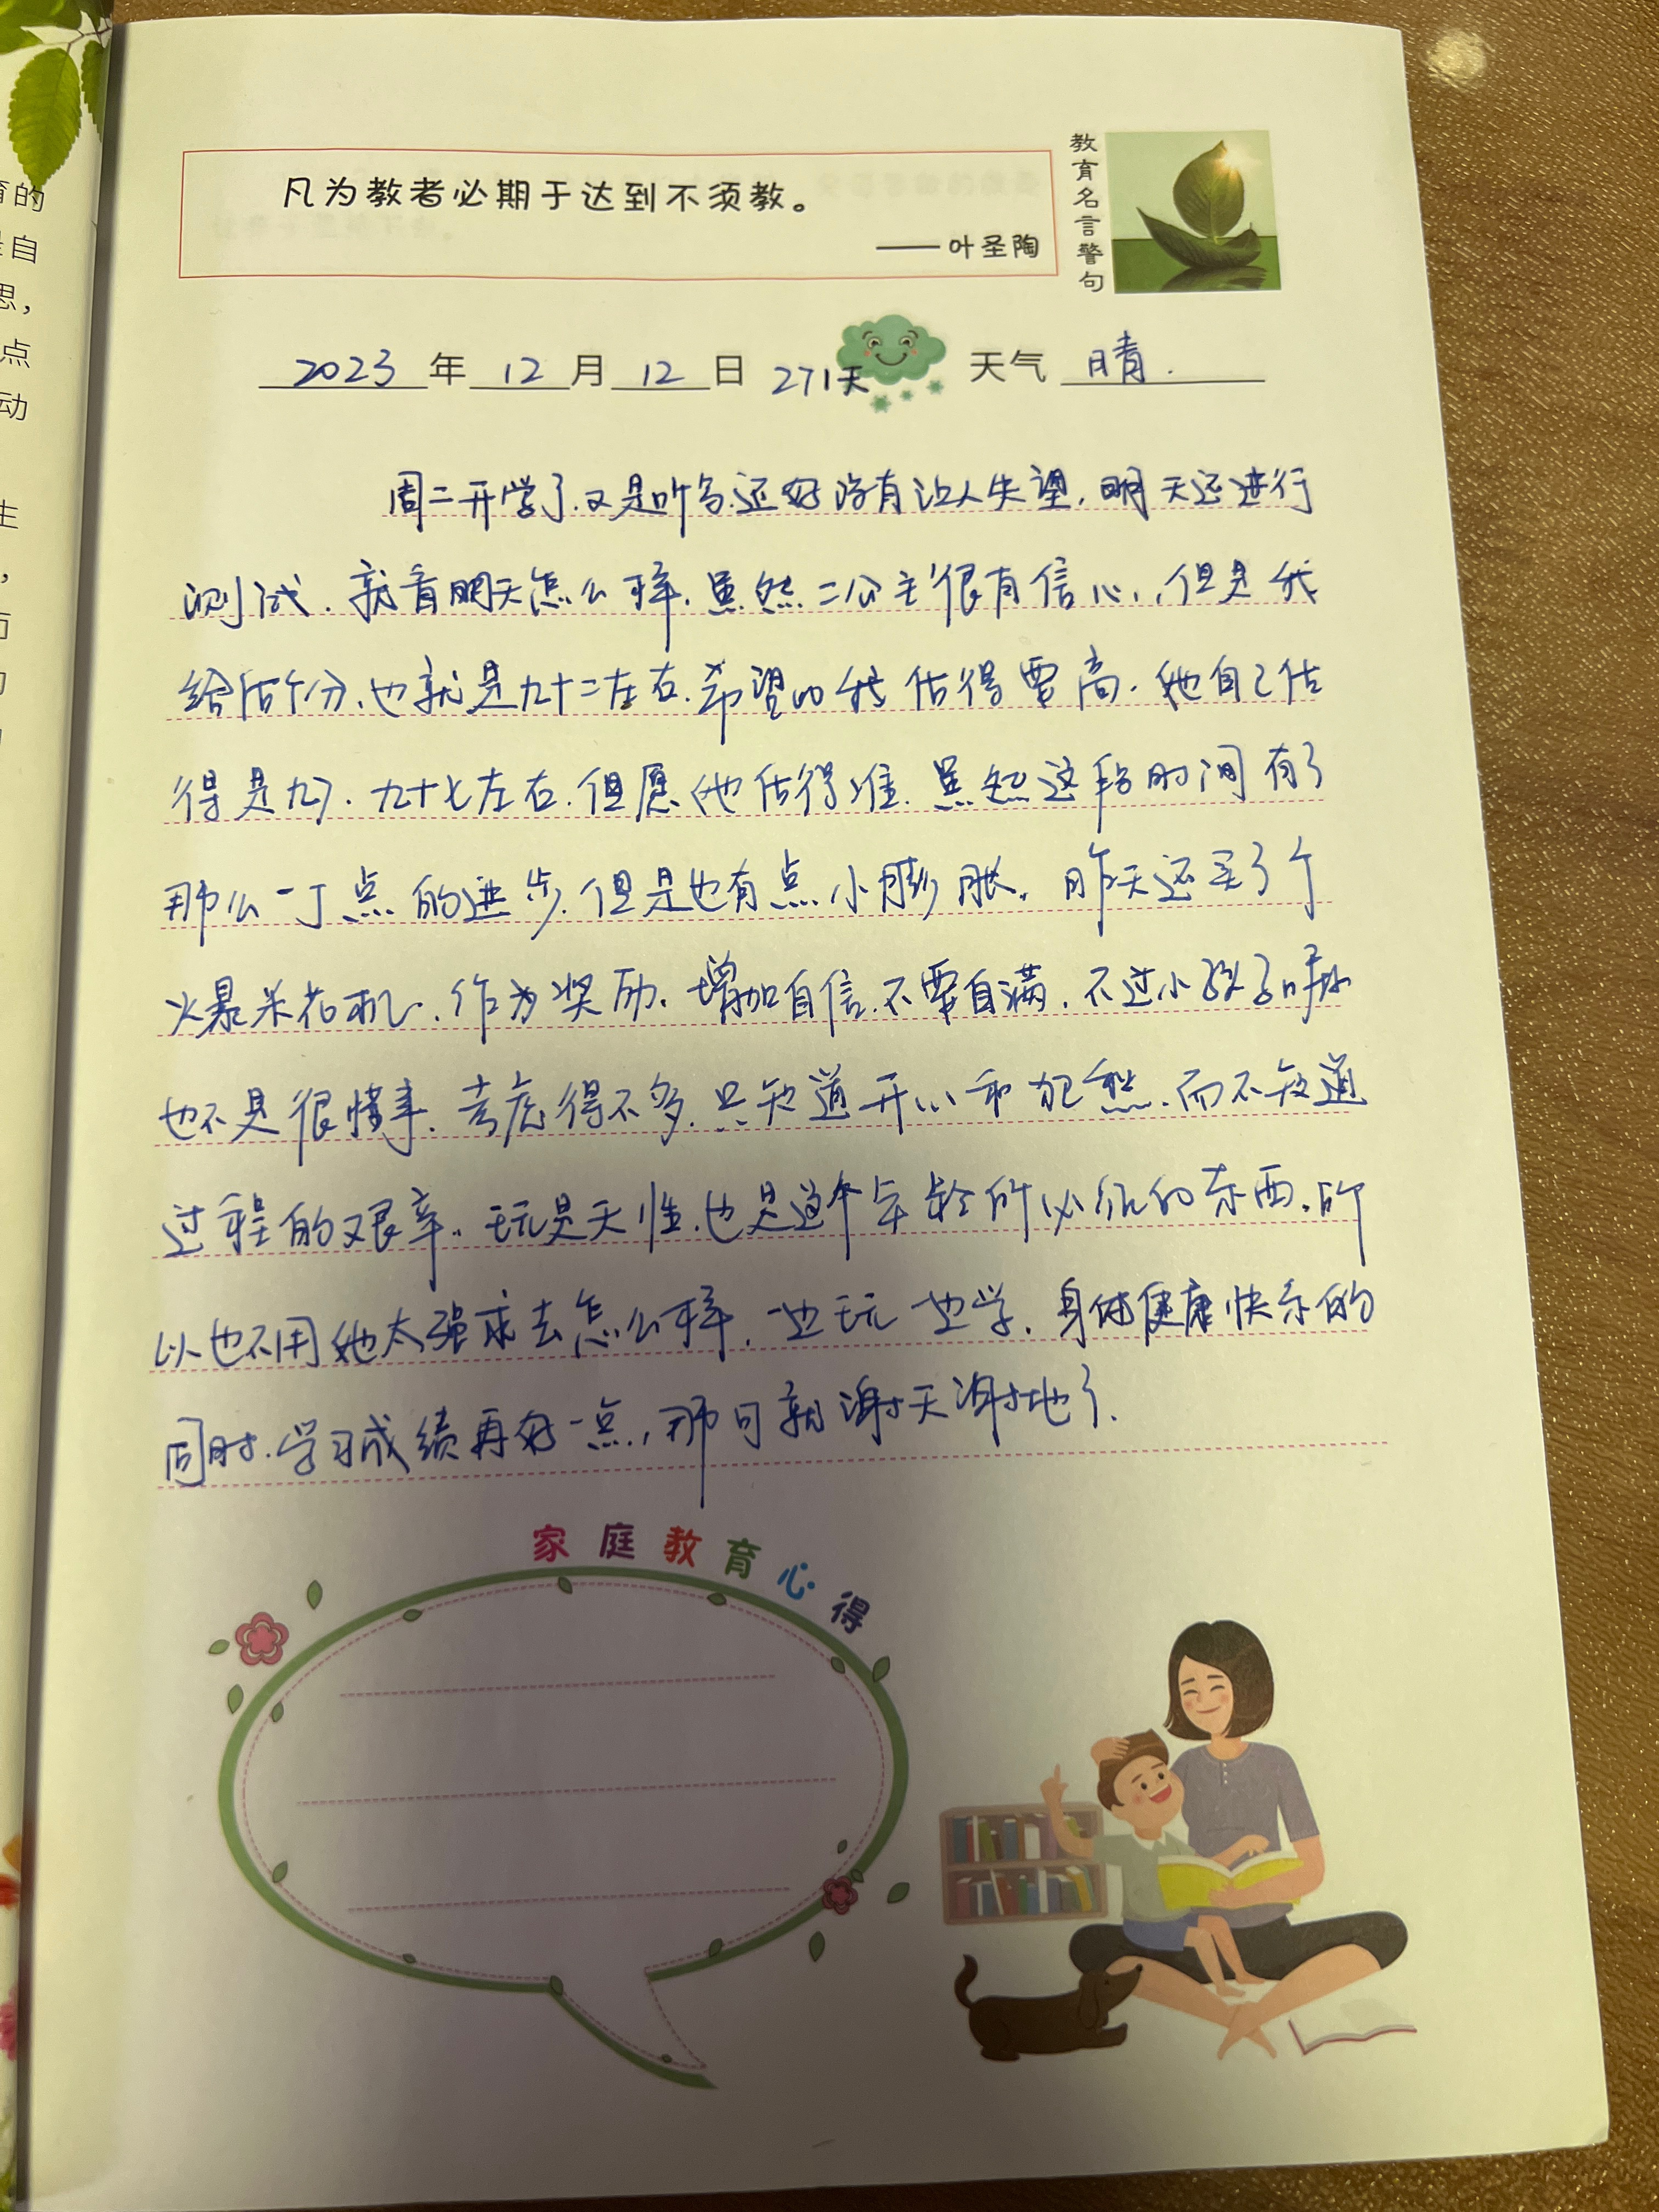 凡为教者必期于达到不须教。
——叶圣陶
教育名言警句
2023年12月12日 271天 天气 晴.
周二开学了.又是听写.还好没有让人失望.明天还进行
测试.就看明天怎么样.虽然二公主很有信心,但是我
给估个分、也就是九十二左右.希望比我估得要高.她自己估
得是九、九十七左右.但愿她估得准.虽然这段时间有了
那么一丁点的进步.但是也有点小膨胀.昨天还买了个
火暴米花机.作为奖励.增加自信.不要自满.不过小孩子嘛
也不是很懂事.考虑得不多.只知道开心和.而不知道
过程的艰辛.玩是天性.也是这个年龄所必须的东西.所
以也不用她太强求去怎么样.边玩边学.身体健康快乐的
同时.学习成绩再好一点,那可就谢天谢地了.
家庭教育心得
育的
是自
思，
点
动
生
，